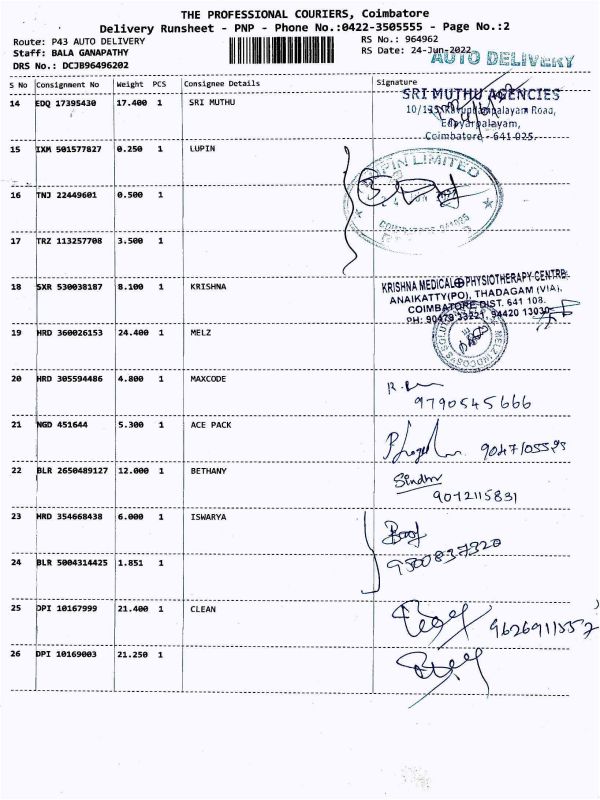 THE PROFESSIONAL COURIERS, Coimbatore
Delivery Runsheet - PNP - Phone No.:0422-3505555 - Page No.:2
Route: P43 AUTO DELIVERY
RS No.: 964962
Staff: BALA GANAPATHY
RS Date: 24-Jun-2022
AUTO DELIVERY
DRS No.: DCJB96496202
S No Consignment No Weight PCS Consignee Details Signature
14 EDQ 17395430 17.400 1 SRI MUTHU
SRI MUTHU AGENCIES
Coimbatore - 641 025.
15 IXM 501577827 0.250 1 LUPIN
LUPIN LIMITED
16 TNJ 22449601 0.500 1
17 TRZ 113257708 3.500 1
18 SXR 530038187 8.100 1 KRISHNA
KRISHNA MEDICAL PHYSIOTHERAPY CENTRE
ANAIKATTY(PO), THADAGAM (VIA),
COIMBATORE DIST. 641 108.
19 HRD 360026153 24.400 1 MELZ
20 HRD 305594486 4.800 1 MAXCODE
9790545666
21 NGD 451644 5.300 1 ACE PACK
22 BLR 2650489127 12.000 1 BETHANY
Sindhu
9012115831
23 HRD 354668438 6.000 1 ISWARYA
9500837320
24 BLR 5004314425 1.851 1
25 DPI 10167999 21.400 1 CLEAN
26 DPI 10169003 21.250 1